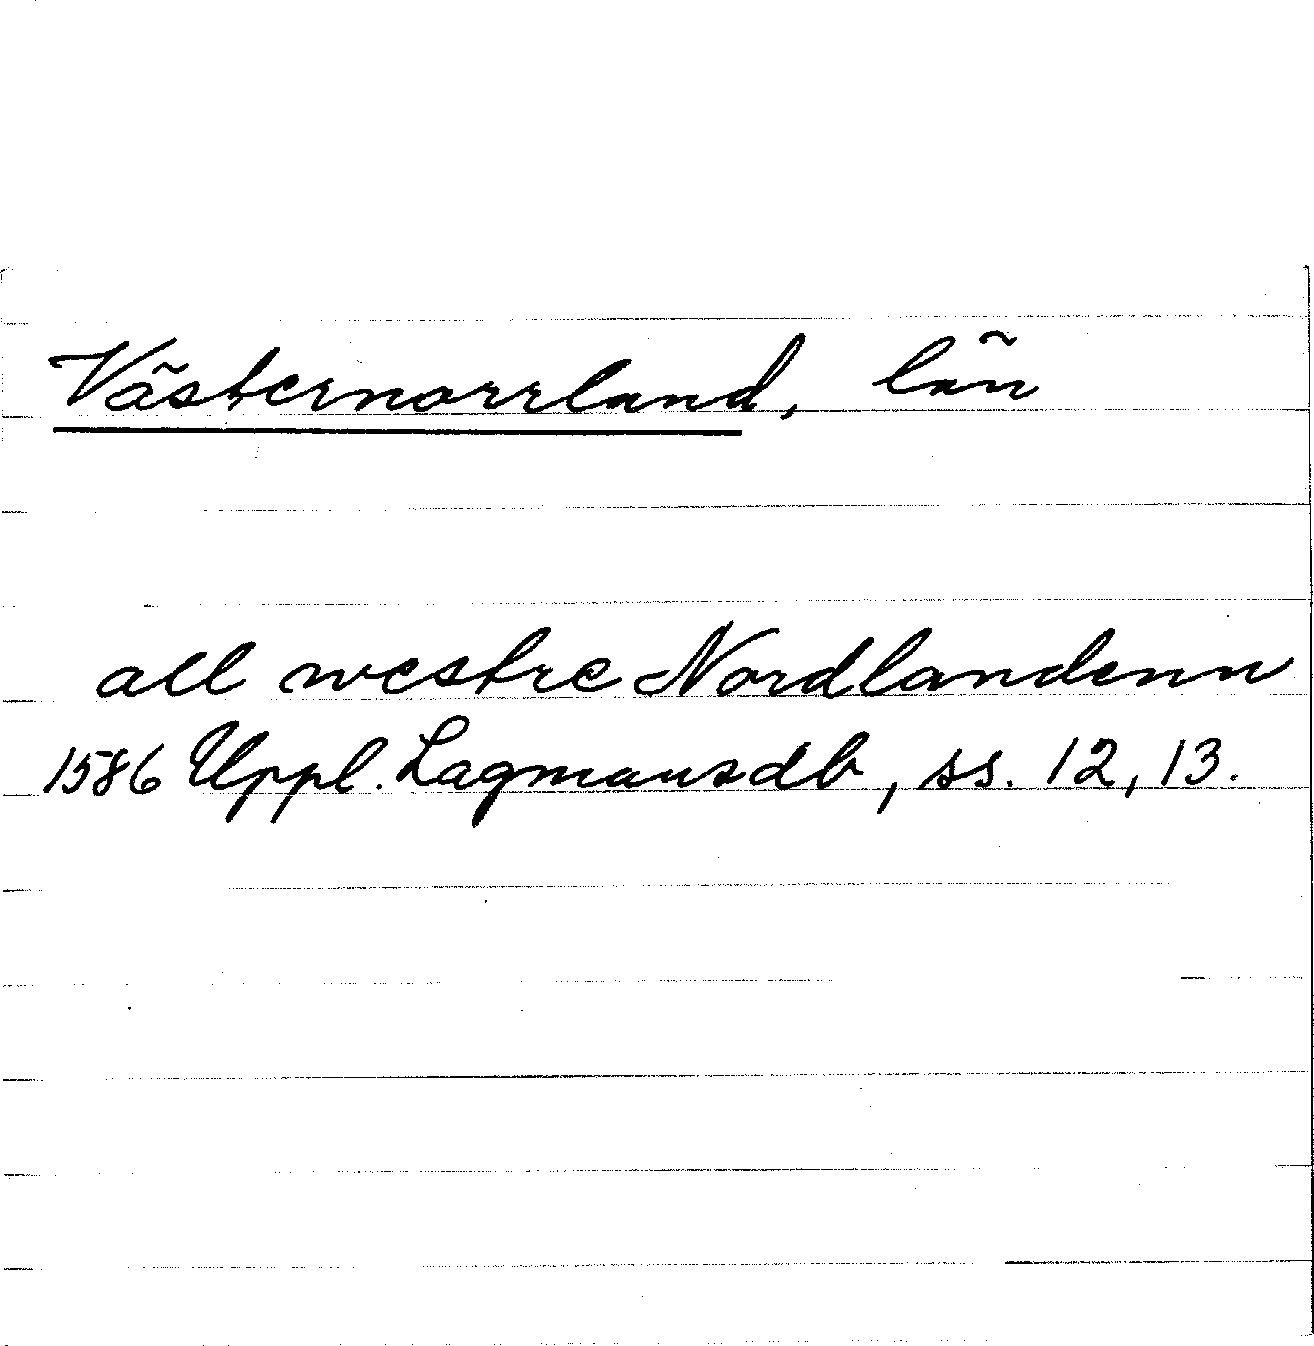 Västernorrland, län
all westre Nordlandenn
1586 Uppl. Lagmansdb, ss. 12, 13.